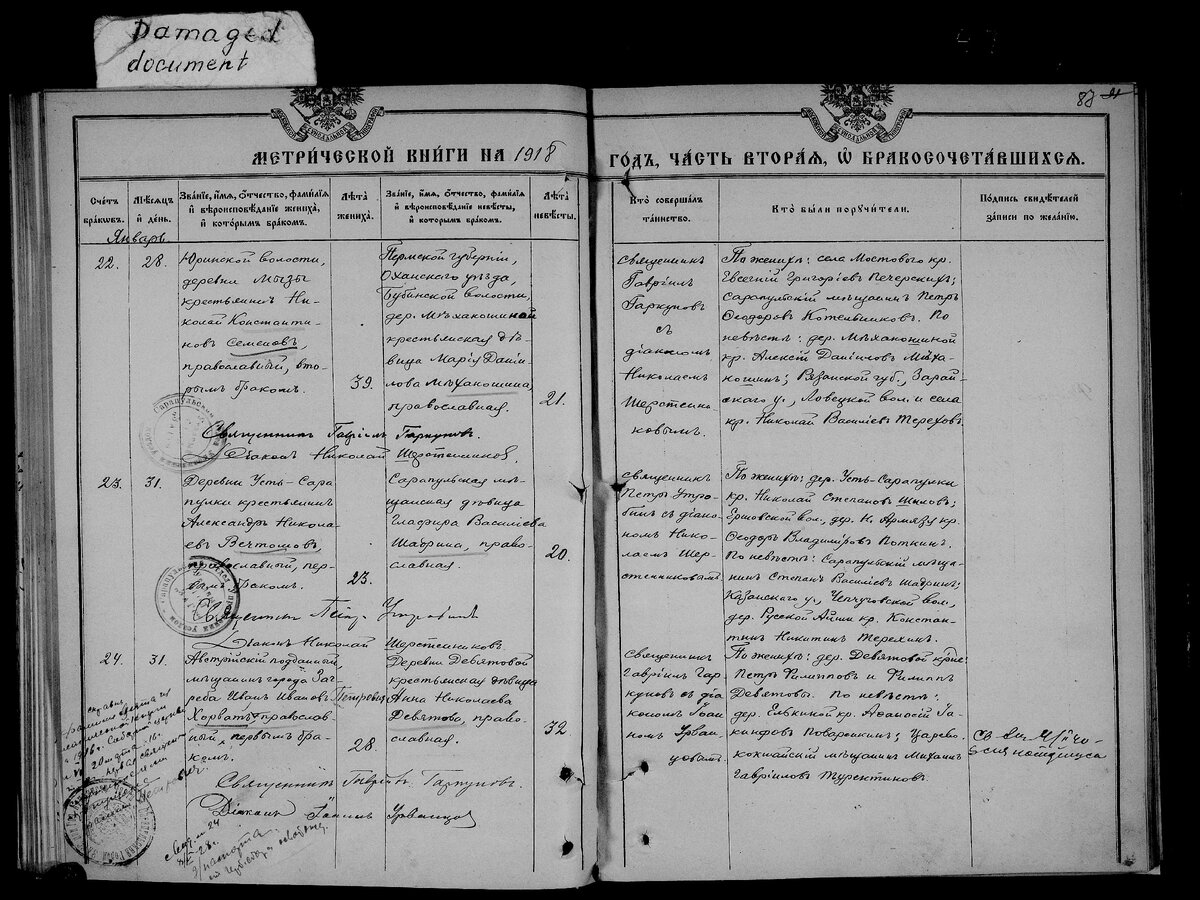 Damaged
document
87
МЕТРИЧЕСКОЙ КНИГИ НА 1918
ГОДЪ, ЧАСТЬ ВТОРАЯ, Ѽ БРАКОСОЧЕТАВШИХСЯ.
Счетъ браковъ.
Мѣсяцъ и день.
Званіе, имя, отчество, фамилія
и вѣроисповѣданіе жениха,
и которымъ бракомъ.
Лѣта
жениха.
Званіе, имя, отчество, фамилія
и вѣроисповѣданіе невѣсты,
и которымъ бракомъ.
Лѣта
невѣсты.
Кто совершалъ
таинство.
Кто были поручители.
Подпись свидѣтелей
записи по желанію.
Январь.
22.
28.
Юринской волости,
деревни Мызы
крестьянинъ Ни-
колай Константи-
новъ Семеновъ,
православный, вто-
рымъ бракомъ.
39.
Пермской губерніи,
Оханскаго уѣзда,
Бубинской волости,
дер. Мѣхакошиной
крестьянская дѣ-
вица Марія Даніи-
лова Мѣхакошина,
православная.
21.
Священникъ
Гавріилъ
Гаркуновъ
съ
діакономъ
Николаемъ
Шерстенни-
ковымъ.
По женихѣ: села Мостового кр.
Евгеній Григоріевъ Печерскихъ;
Сарапульскій мѣщанинъ Петръ
Ѳеодоровъ Котельниковъ. По
невѣстѣ: дер. Мѣхакошиной
кр. Алексій Даніиловъ Мѣха-
кошинъ; Рязанской губ., Зарай-
скаго у., Ловецкой вол. и села
кр. Николай Василіевъ Тереховъ.
Священникъ Гавріилъ Гаркуновъ.
Діаконъ Николай Шерстенниковъ.
23.
31.
Деревни Усть-Сара
пулки крестьянинъ
Александръ Никола-
евъ Вечтомовъ,
православный, пер-
вымъ бракомъ.
23.
Сарапульская мѣ-
щанская дѣвица
Глафира Василіева
Шадрина, право-
славная.
20.
Священникъ
Петръ Утро-
бинъ съ діако-
номъ Нико-
лаемъ Шер-
стенниковымъ.
По женихѣ: дер. Усть-Сарапулки
кр. Николай Степановъ Шиховъ;
Ершовской вол., дер. Н. Армязь кр.
Ѳеодоръ Владиміровъ Поткинъ.
По невѣстѣ: Сарапульскій мѣща-
нинъ Степанъ Василіевъ Шадринъ;
Казанскаго у., Чепчуговской вол.,
дер. Русской Айши кр. Констан-
тинъ Никитинъ Терехинъ.
Священникъ Петръ Утробинъ
Діаконъ Николай Шерстенниковъ
24.
31.
Австрійскій подданный,
мѣщанинъ города Заг-
реба Иванъ Ивановъ Петровичъ
Хорватъ православ-
ный, первымъ бра-
комъ.
28.
Деревни Девятовой
крестьянская дѣвица
Анна Николаева
Девятова, право-
славная.
32
Священникъ
Гавріилъ Гар-
куновъ съ діа
кономъ Іоан
номъ Урван
цовымъ.
По женихѣ: дер. Девятовой кр-не:
Петръ Филипповъ и Филиппъ
Девятовы. По невѣстѣ:
дер. Елькиной кр. Аѳанасій Іа-
кинфовъ Поваренкинъ; Царево-
кокшайскій мѣщанинъ Михаилъ
Гавріиловъ Турентиковъ.
Священникъ Гавріилъ Гаркуновъ.
Діаконъ Іоаннъ Урванцов